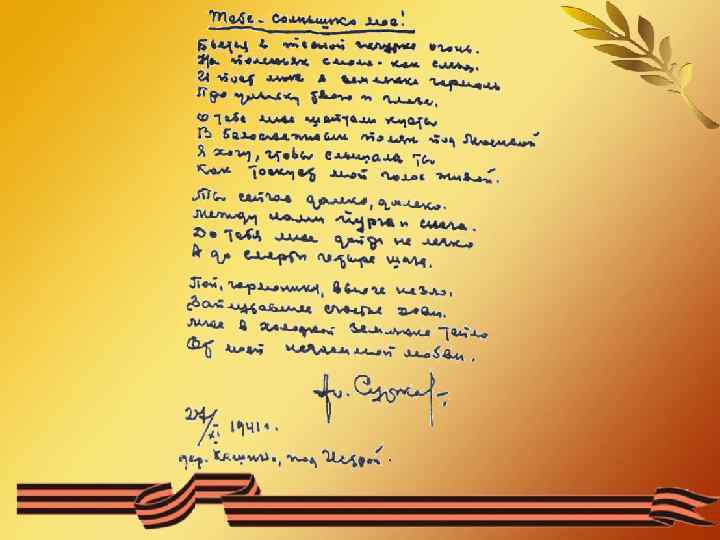 Тебе - солнышко мое!
Бьется в тесной печурке огонь.
На поленьях смола - как слеза.
И поет мне в землянке гармонь
Про улыбку твою и глаза.
О тебе мне шептали кусты
В белоснежных полях под Москвой
Я хочу, чтобы слышала ты
Как тоскует мой голос живой.
Ты сейчас далеко, далеко.
Между нами пурга и снега.
До тебя мне дойти не легко
А до смерти четыре шага.
Пой, гармоника, вьюге назло.
Заплутавшее счастье зови.
Мне в холодной землянке тепло
От моей негасимой любви.
Ал. Сурков
27/XI 1941 г.
дер. Кашино, под Истрой.